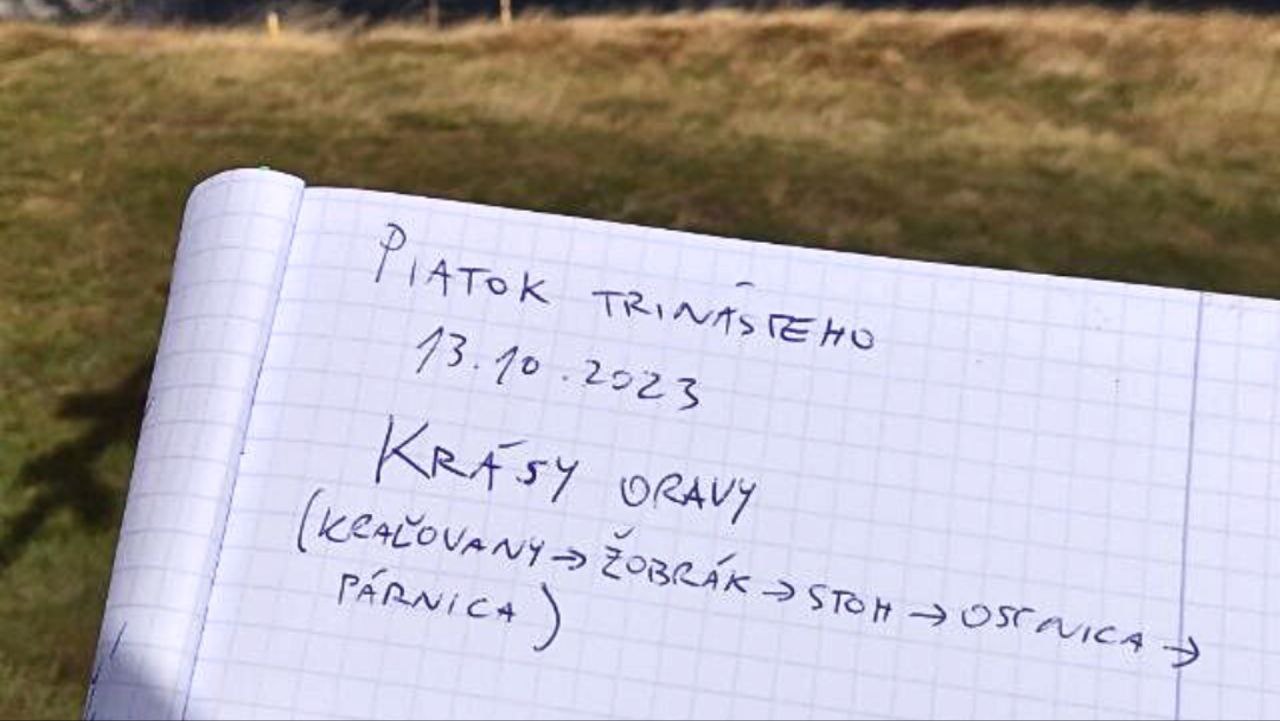 PIATOK TRINÁSTEHO
13.10.2023
KRÁSY ORAVY
(KRAĽOVANY → ŽOBRÁK → STOH → OSNICA →
PÁRNICA)